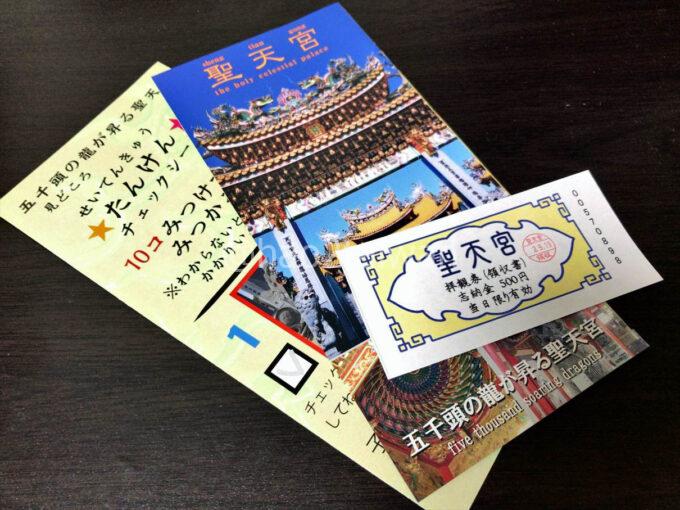 五千頭の龍が昇る聖天
見どころ
せいてんきゅう
★たんけん★
チェックシー
10コみつけ
みつか
※わからないと
かかりい
1
チェッ
してね
sheng tian gong
聖天宮
the holy celestial palace
五千頭の龍が昇る聖天宮
five thousand soaring dragons
00570898
聖天宮
拝観券(領収書)
志納金 500円
当日限り有効